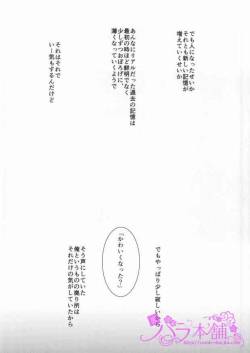 でも人になったせいか
それとも新しい記憶が
増えていくせいか
あんなにリアルだった過去の記憶は
最初の時ほど鮮明でなく
少しずつおぼろげに、
薄くなっていくようで
それはそれで
いー気もするんだけど
でもやっぱり少し寂しい
「かわいくなった?」
そう声にしていた
俺というものの奥り所は
それだけの気がしていたから